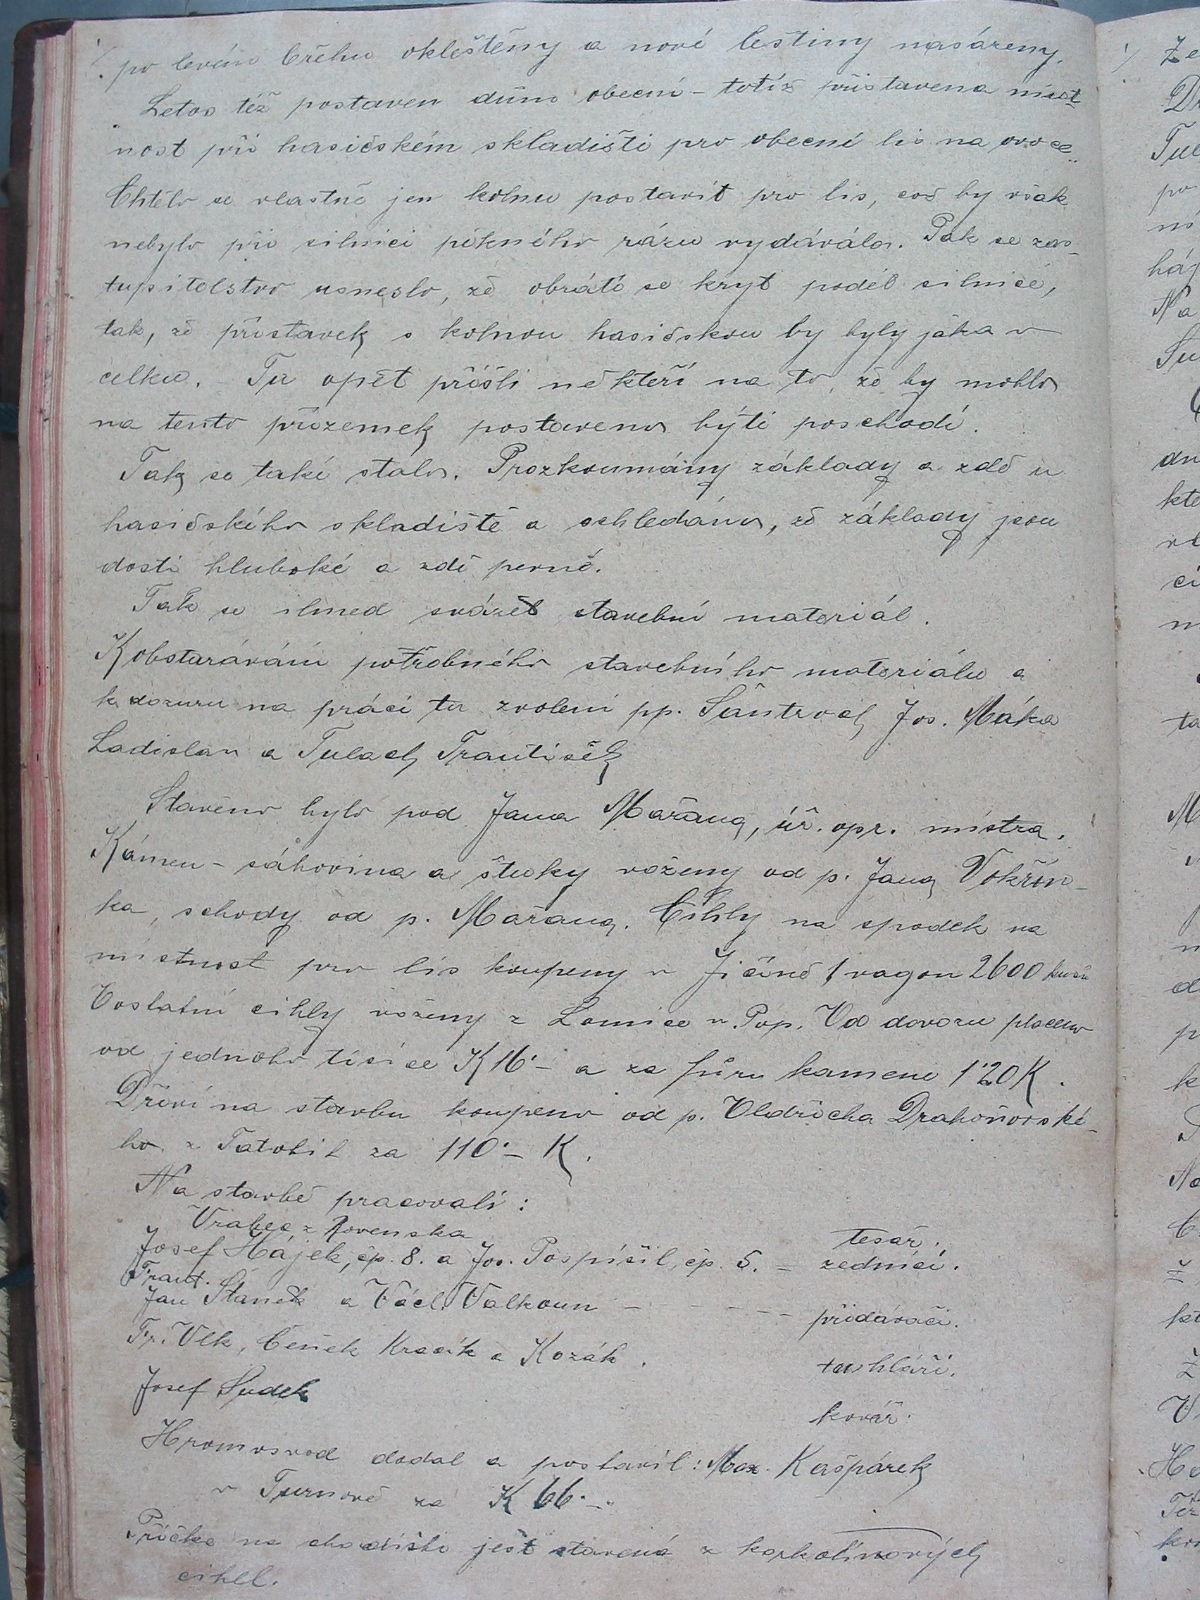 po levém břehu oklěštěny a nové lestiny nasázeny.
Letos též postaven dům obecní – totiž přistavena míst
nost při hasičském skladišti pro obecní lis na ovoce.
Chtělo se vlastně jen kolnu postavit pro lis, což by však
nebylo při silnici pěkného rázu vydávalo. Pak se zas-
tupitelstvo usneslo, že obrátí se kryt podél silnice,
tak, že přístavek s kolnou hasičskou by byly jaka v
celku. Tu opět přišli někteří na to, že by mohlo
na tento přízemek postaveno býti poschodí.
Tak se také stalo. Prozkoumány základy a zdě u
hasičského skladiště a shledáno, že základy jsou
dosti hluboké a zdě pevné.
Tak se ihned svážel stavební materiál.
K obstarávání potřebného stavebního materiálu a
k dozoru na práci tu zvoleni pp. Šantroch Jos. Máka
Ladislav a Tulach František
Stavěno bylo pod Jana Mařana, úř. opr. mistra.
Kámen – sáhovina a štuky voženy od p. Jana Vokřín-
ka, schody od p. Mařana. Cihly na spodek na
místnost pro lis koupeny v Jičíně 1 vagon 2600 kusů
Ostatní cihly voženy z Lomice n. Pop. Od dovozu placeno
od jednoho tisíce K 16·– a za fůru kamene 1·20 K.
Dříví na stavbu koupeno od p. Oldřicha Drahoňovské-
ho z Tatobit za 110·– K.
Na stavbě pracovali:
Vrabec z Rovenska tesař.
Josef Hájek, čp. 8. a Jos. Pospíšil, čp. 5. – zedníci.
Frant.
Jan Staněk a Václ. Valkoun – – – – přidavači.
Fr. Vlk, Čeněk Kracík a Kozák. truhláři.
Josef Sudek kovář.
Hromosvod dodal a postavil: Max. Kašpárek
v Turnově za K 66·–
Příčka na chodišti jest stavená z korkolinových
cihel.